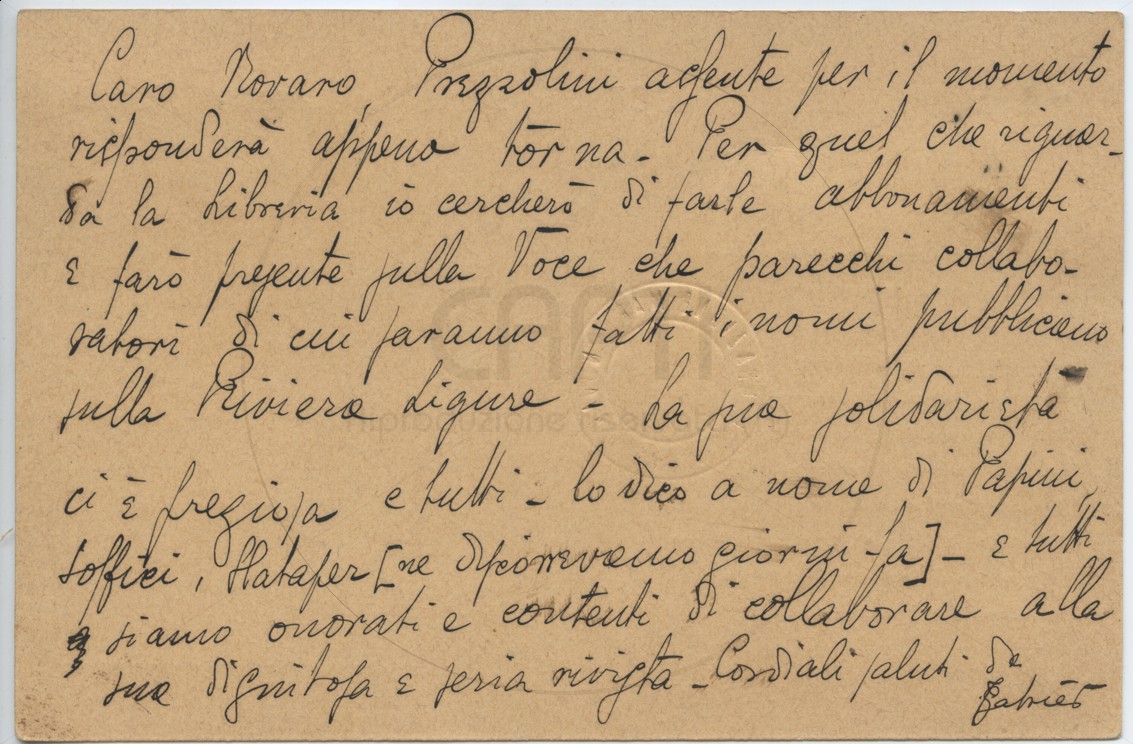 Caro Novaro, Prezzolini assente per il momento
risponderà appena torna - Per quel che riguar-
da la Libreria io cercherò di farle abbonamenti
e farò presente sulla Voce che parecchi collabo-
ratori di cui saranno fatti i nomi pubblicano
sulla Riviera Ligure - La sua solidarietà
ci è preziosa e tutti - lo dico a nome di Papini,
Soffici, Slataper [ne discorrevamo giorni fa] - e tutti
siamo onorati e contenti di collaborare alla
sua dignitosa e seria rivista - Cordiali saluti da
Jahier
CNR
riproduzione riservata